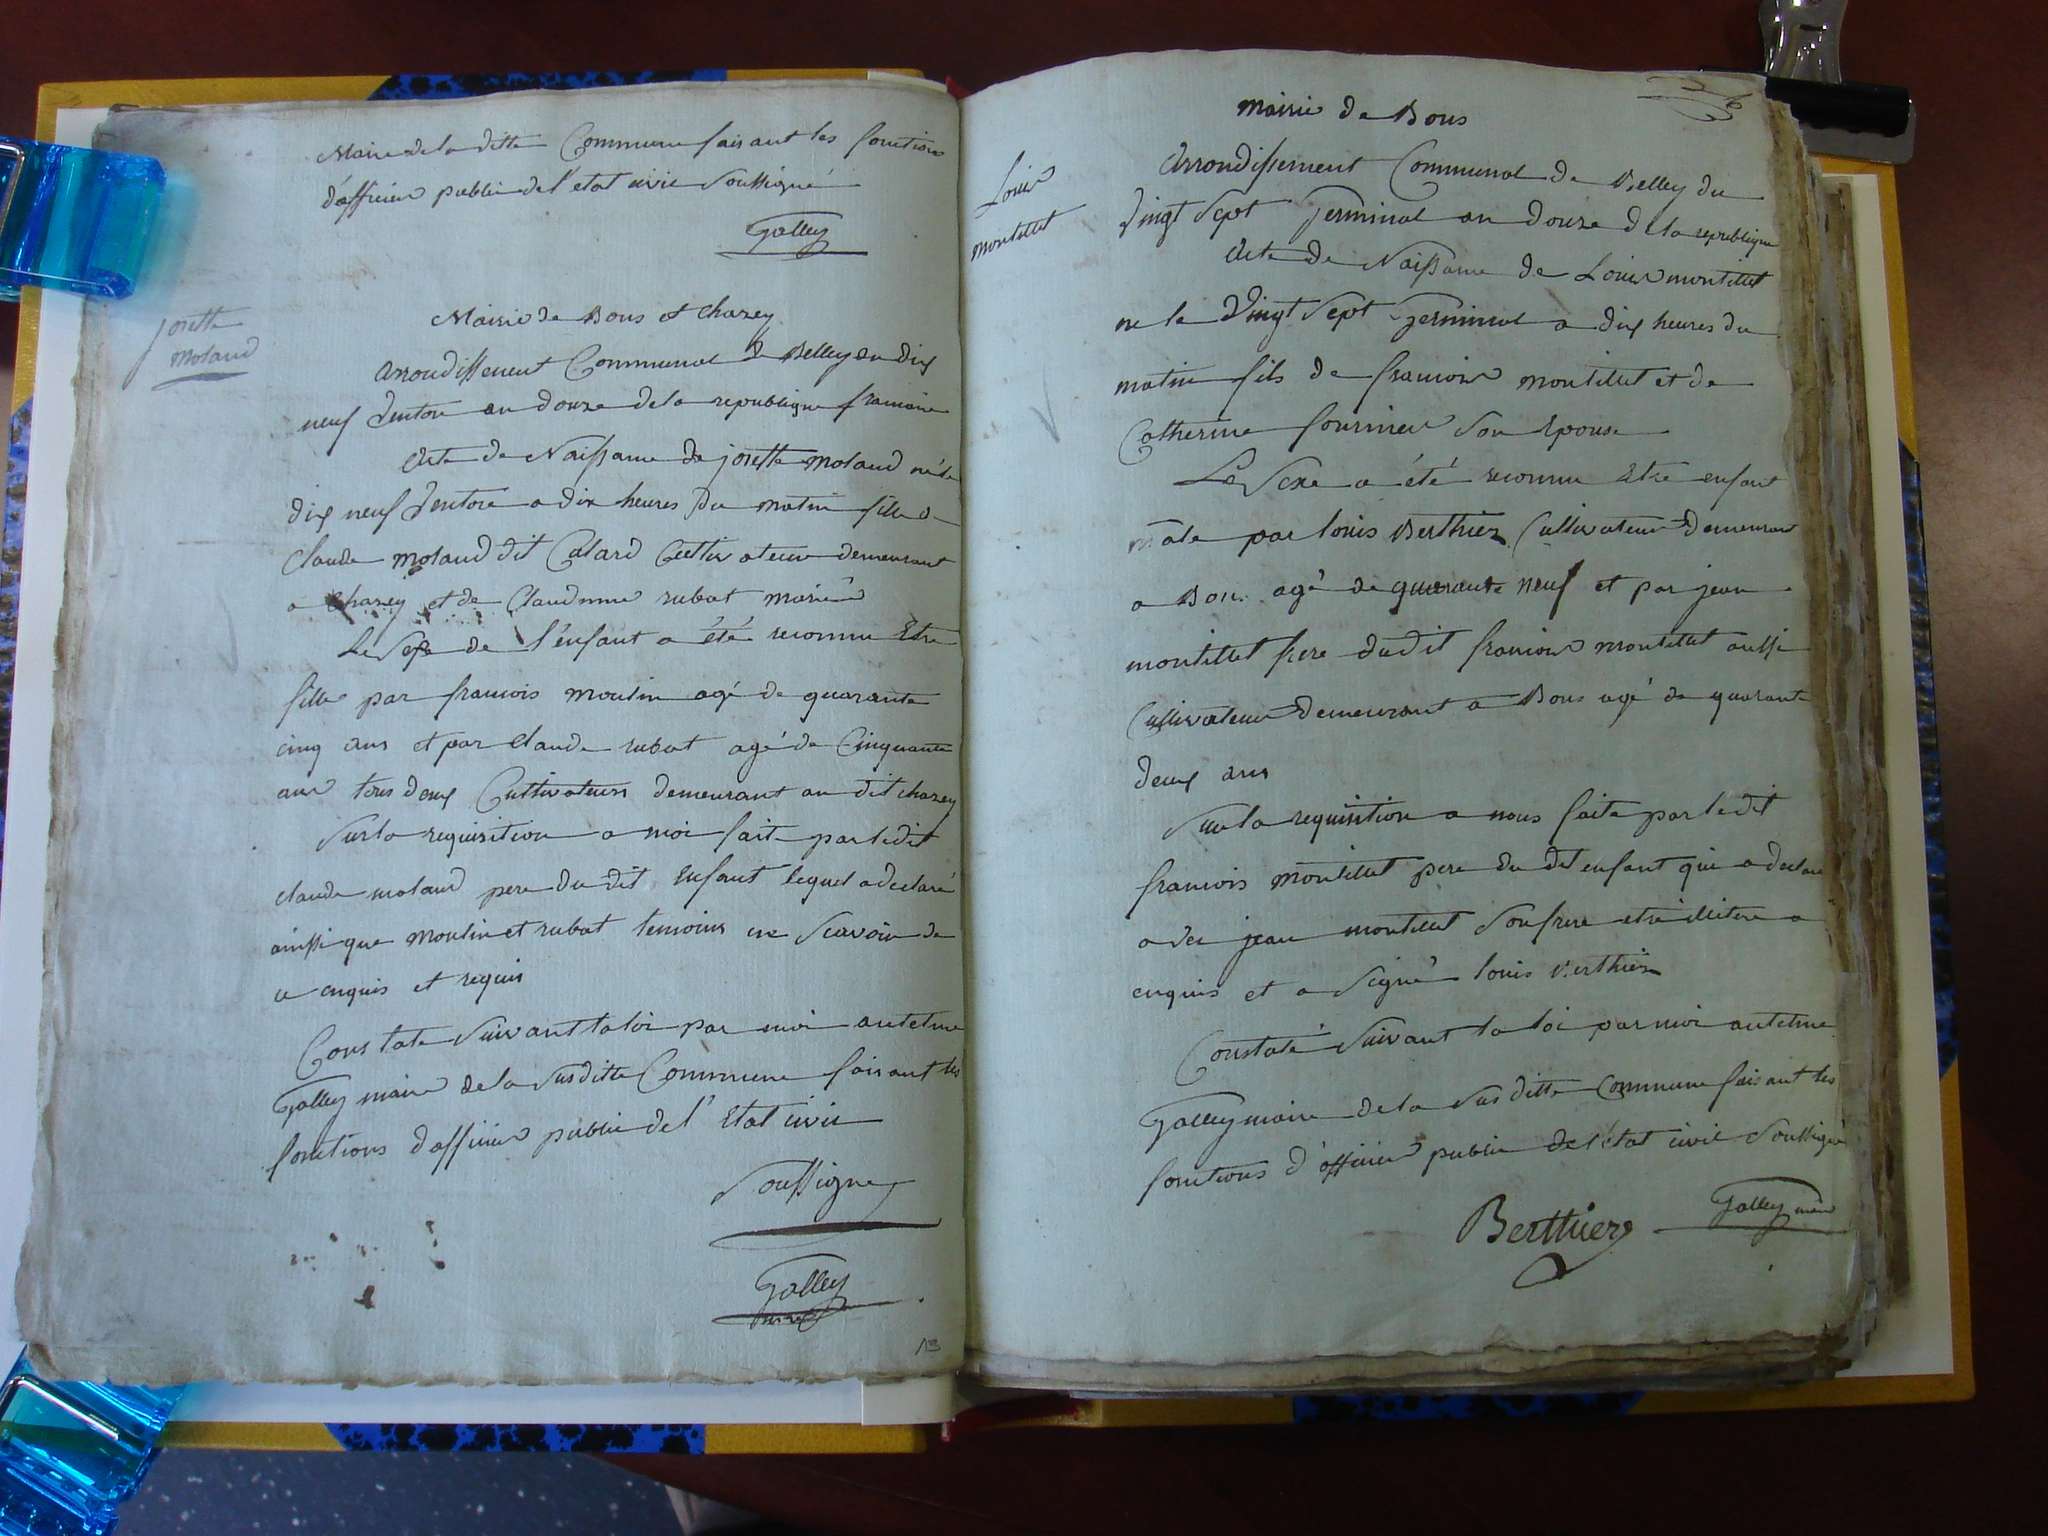 Maire de la ditte Commune faisant les fonctions
d'afficier public de l'etat civil soussigné
Galley
josette
molard
Mairie de Bons et Chazey
arrondissement Communal de Belley du dix
neuf ventose an douze de la republique francaise
Acte de Naissance de josette molard née le
dix neuf ventose a dix heures du matin fille a
Claude molard dit Calard Cultivateur demeurant
a Chazey et de Claudinne rubat mariée
Le sexe de l'enfant a été reconnu Etre
fille par francois moulin agé de quarante
cinq ans et par Claude rubat agé de Cinquante
ans tous deux Cultivateurs demeurant au dit chazey
Sur la requisition a moi faite par ledit
claude molard pere du dit Enfant lequel a declaré
ainssi que moulin et rubat temoins ne scavoir de
ce enquis et requis
Constate suivant la loi par moi antelme
Galley maire de la susditte Commune faisant les
fonctions d'afficier public de l'Etat civil
soussigné
Galley
maire
13
mairie de Bons
Louis
montillet
Arrondissement Communal de Belley du
vingt sept germinal an douze de la republique
Acte de Naissance de Louis montillet
ne le vingt sept germinal a dix heures du
matin fils de francois montillet et de
Catherine fournier son Epouse
Le sexe a été reconnu Etre enfant
mâle par louis Berthier Cultivateur demeurant
a Bons agé de quarante neuf et par jean
montillet frere du dit francois montillet aussi
Cultivateur demeurant a Bons agé de quarante
deux ans
Sur la requisition a nous faite par le dit
francois montillet pere du dit enfant qui a declare
avec jean montillet son frere etre illitere a
enquis et a signé louis Berthier
Constaté suivant la loi par moi antelme
Galley maire de la sus ditte Commune faisant les
fonctions d'officier public de l'état civil soussigné
Berthier Galley maire